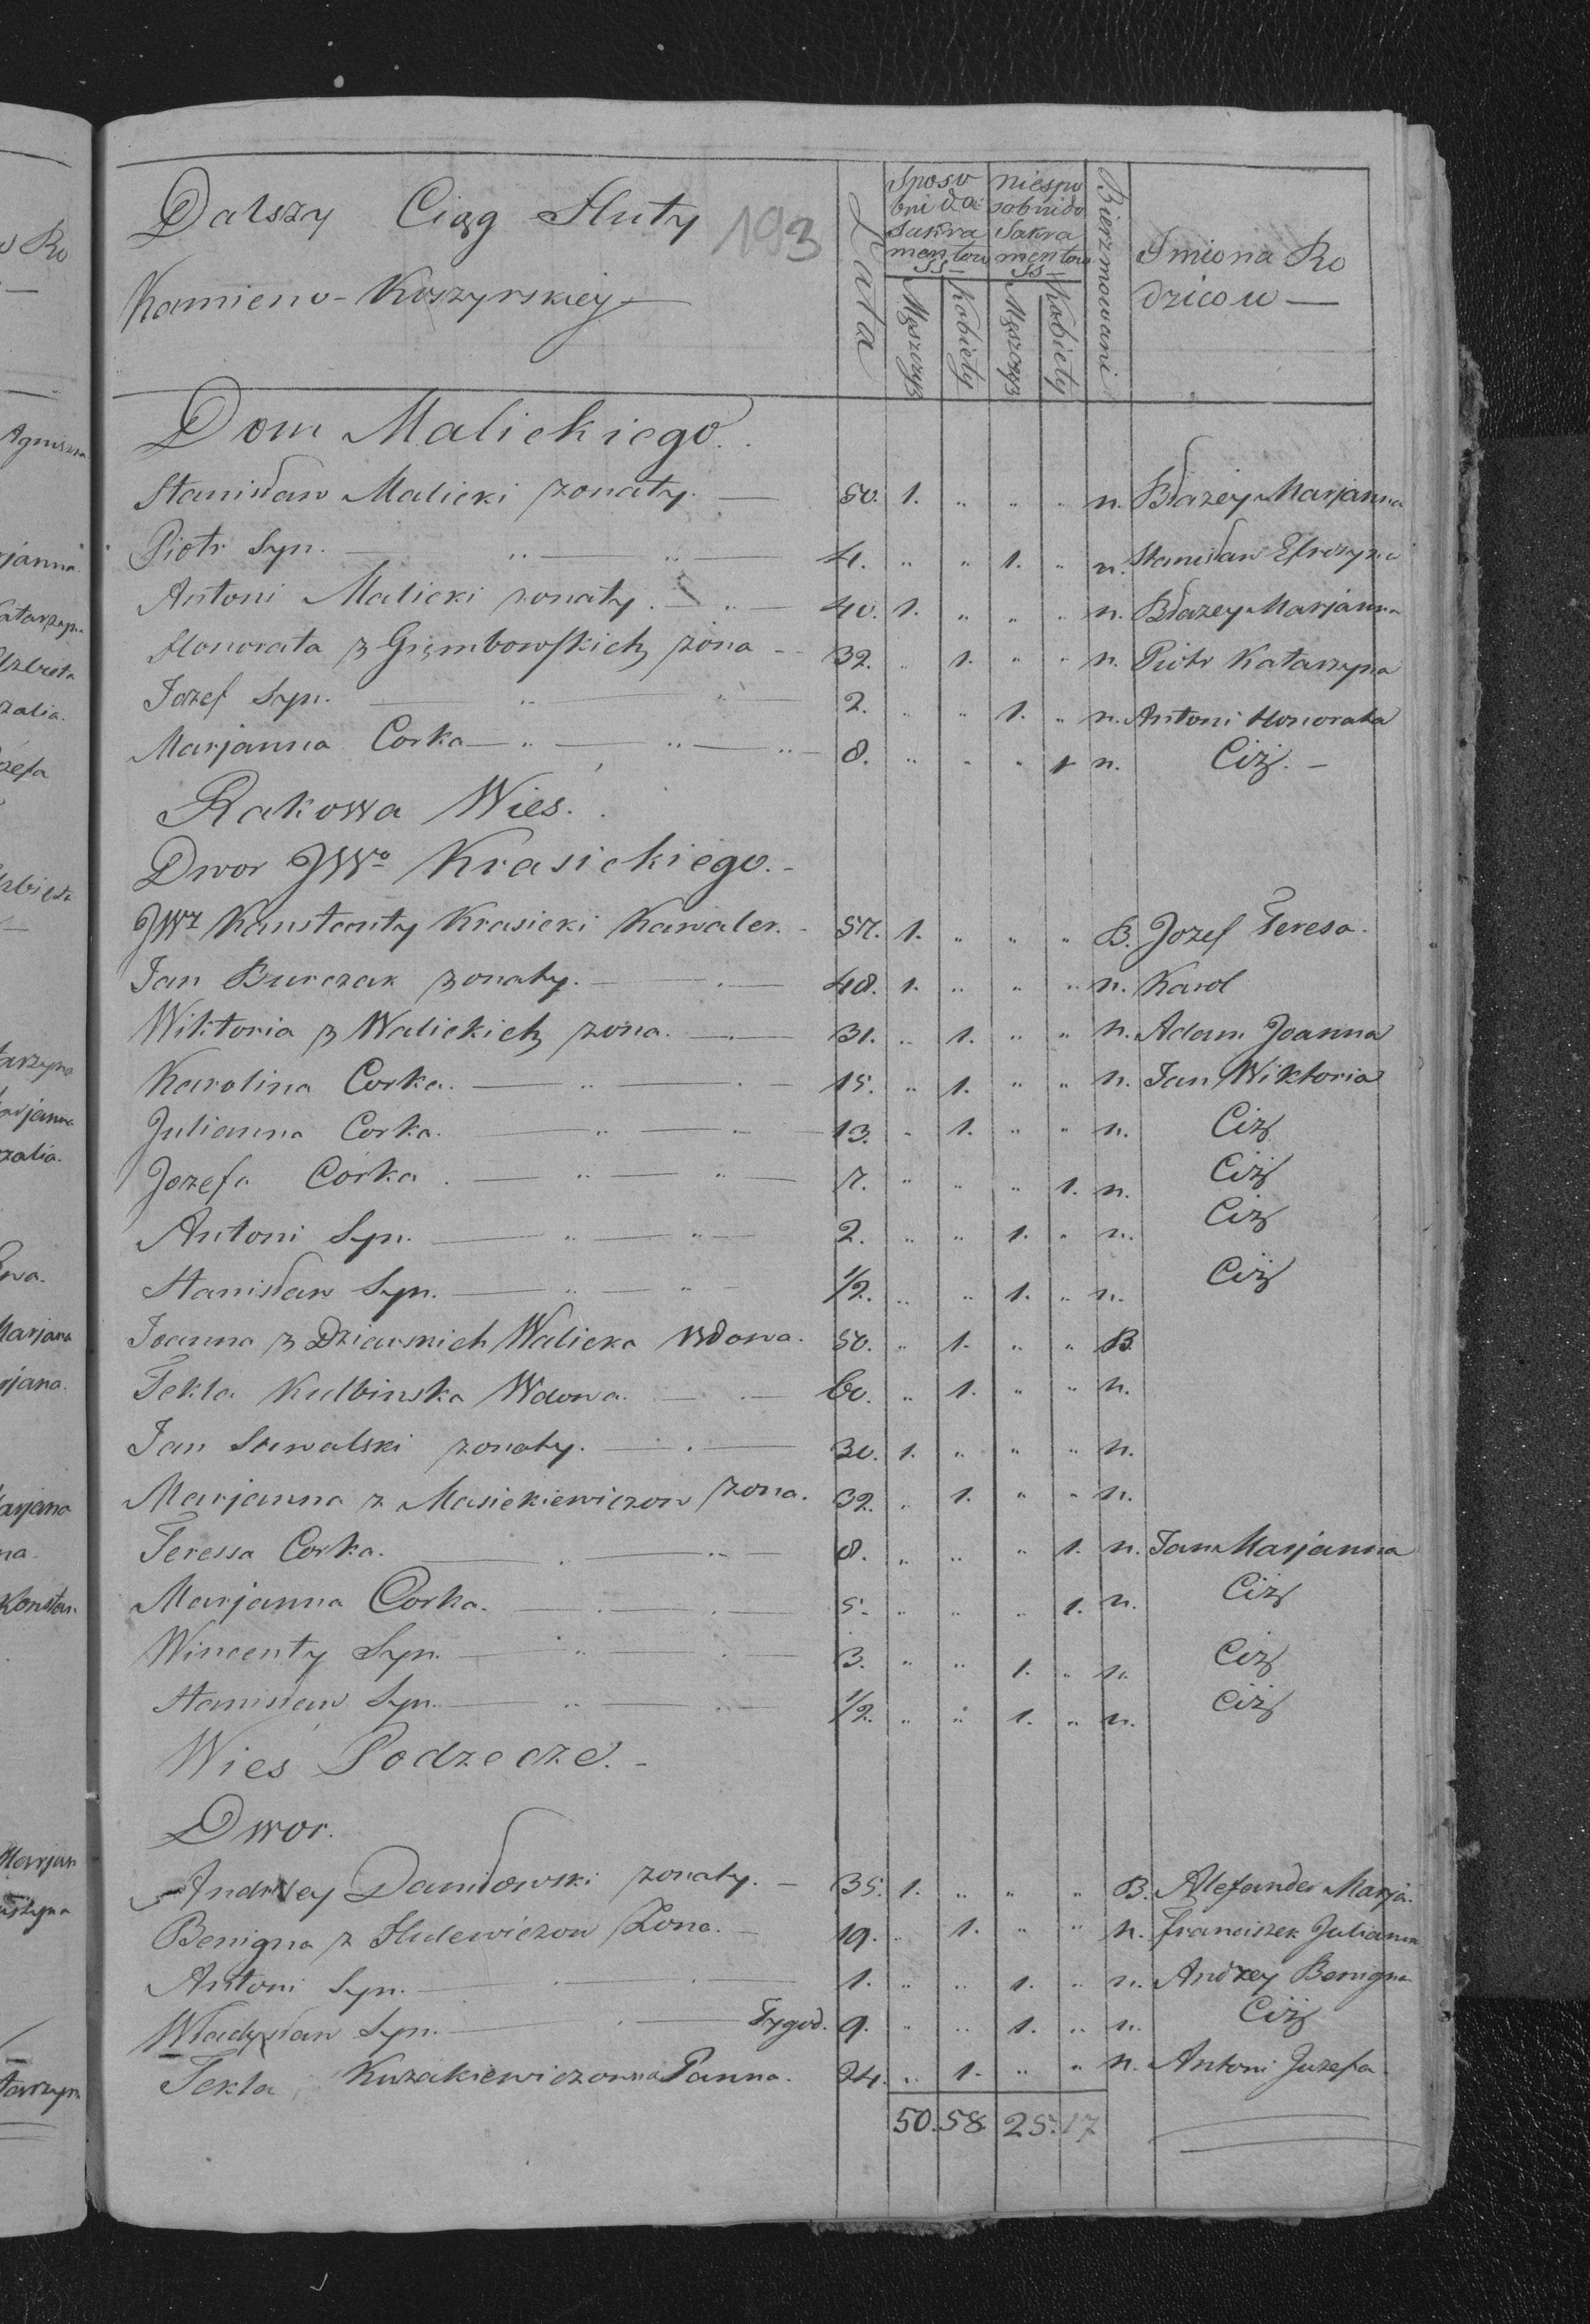 Dalszy Ciąg Huty 193
Kamieno-Koszyrskiey
Lata
Sposo
bni do
Sakra
mentow
SS
niespo
sobni do
Sakra
mentow
SS
Męszczyz
Kobiety
Męszczyz
Kobiety
Bierzmowani
Imiona Ro
dzicow
Dom Malickiego.
Stanisław Malicki zonaty. 50. 1. " " " n. Błazey Marjanna
Piotr Syn. " " 4. " " 1. " n. Stanisław Efrozyna
Antoni Malicki zonaty. " 40. 1. " " " n. Błazey Marjanna
Honorata z Gięmbowskich zona 32. " 1. " " n. Piotr Katarzyna
Jozef Syn. " " 2. " " 1. " n. Antoni Honorata
Marjanna Corka " " " 8. " " " 1 n. Ciż.
Rakowa Wies.
Dwor JWo Krasickiego.
JWz Konstanty Krasicki Kawaler. 57. 1. " " " B. Jozef Teresa.
Jan Burczak zonaty. 48. 1. " " " n. Karol
Wiktoria z Walickich zona. 31. " 1. " " n. Adam Joanna
Karolina Corka. " 15. " 1. " " n. Jan Wiktoria
Julianna Corka. " 13. " 1. " " n. Ciż
Jozefa Córka. " " 7. " " " 1. n. Ciż
Antoni Syn. " " 2. " " 1. " n. Ciż
Stanisław Syn. " " 1/2. " " 1. " n. Ciż
Joanna z Walicka Wdowa. 50. " 1. " " B.
Tekla Kulbinska Wdowa. 60. " 1. " " n.
Jan Suwalski zonaty. 30. 1. " " " n.
Marjanna z Masiekiewiczow zona. 32. " 1. " " n.
Teressa Corka. " 8. " " " 1. n. Jan Marjanna
Marjanna Corka. 5. " " " 1. n. Ciż
Wincenty Syn. " 3. " " 1. " n. Ciż
Stanisław Syn. " 1/2. " " 1. " n. Ciż
Wies Podzecze.
Dwor.
Andrzey Daniłowski zonaty. 35. 1. " " " B. Alexander Marja.
Benigna z Hulewiczow Zona. 19. " 1. " " n. Franciszek Julianna
Antoni Syn. 1. " " 1. " n. Andrzey Benigna
Władysław Syn. Tygod. 9. " " 1. " n. Ciż
Tekla Kuzakiewiczowna Panna. 24. " 1. " " n. Antoni Juzefa.
50. 58. 25. 17